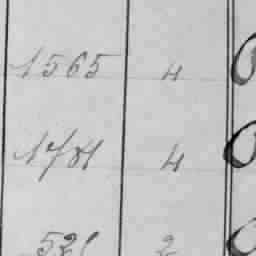 1565 4
1781 4
521 2